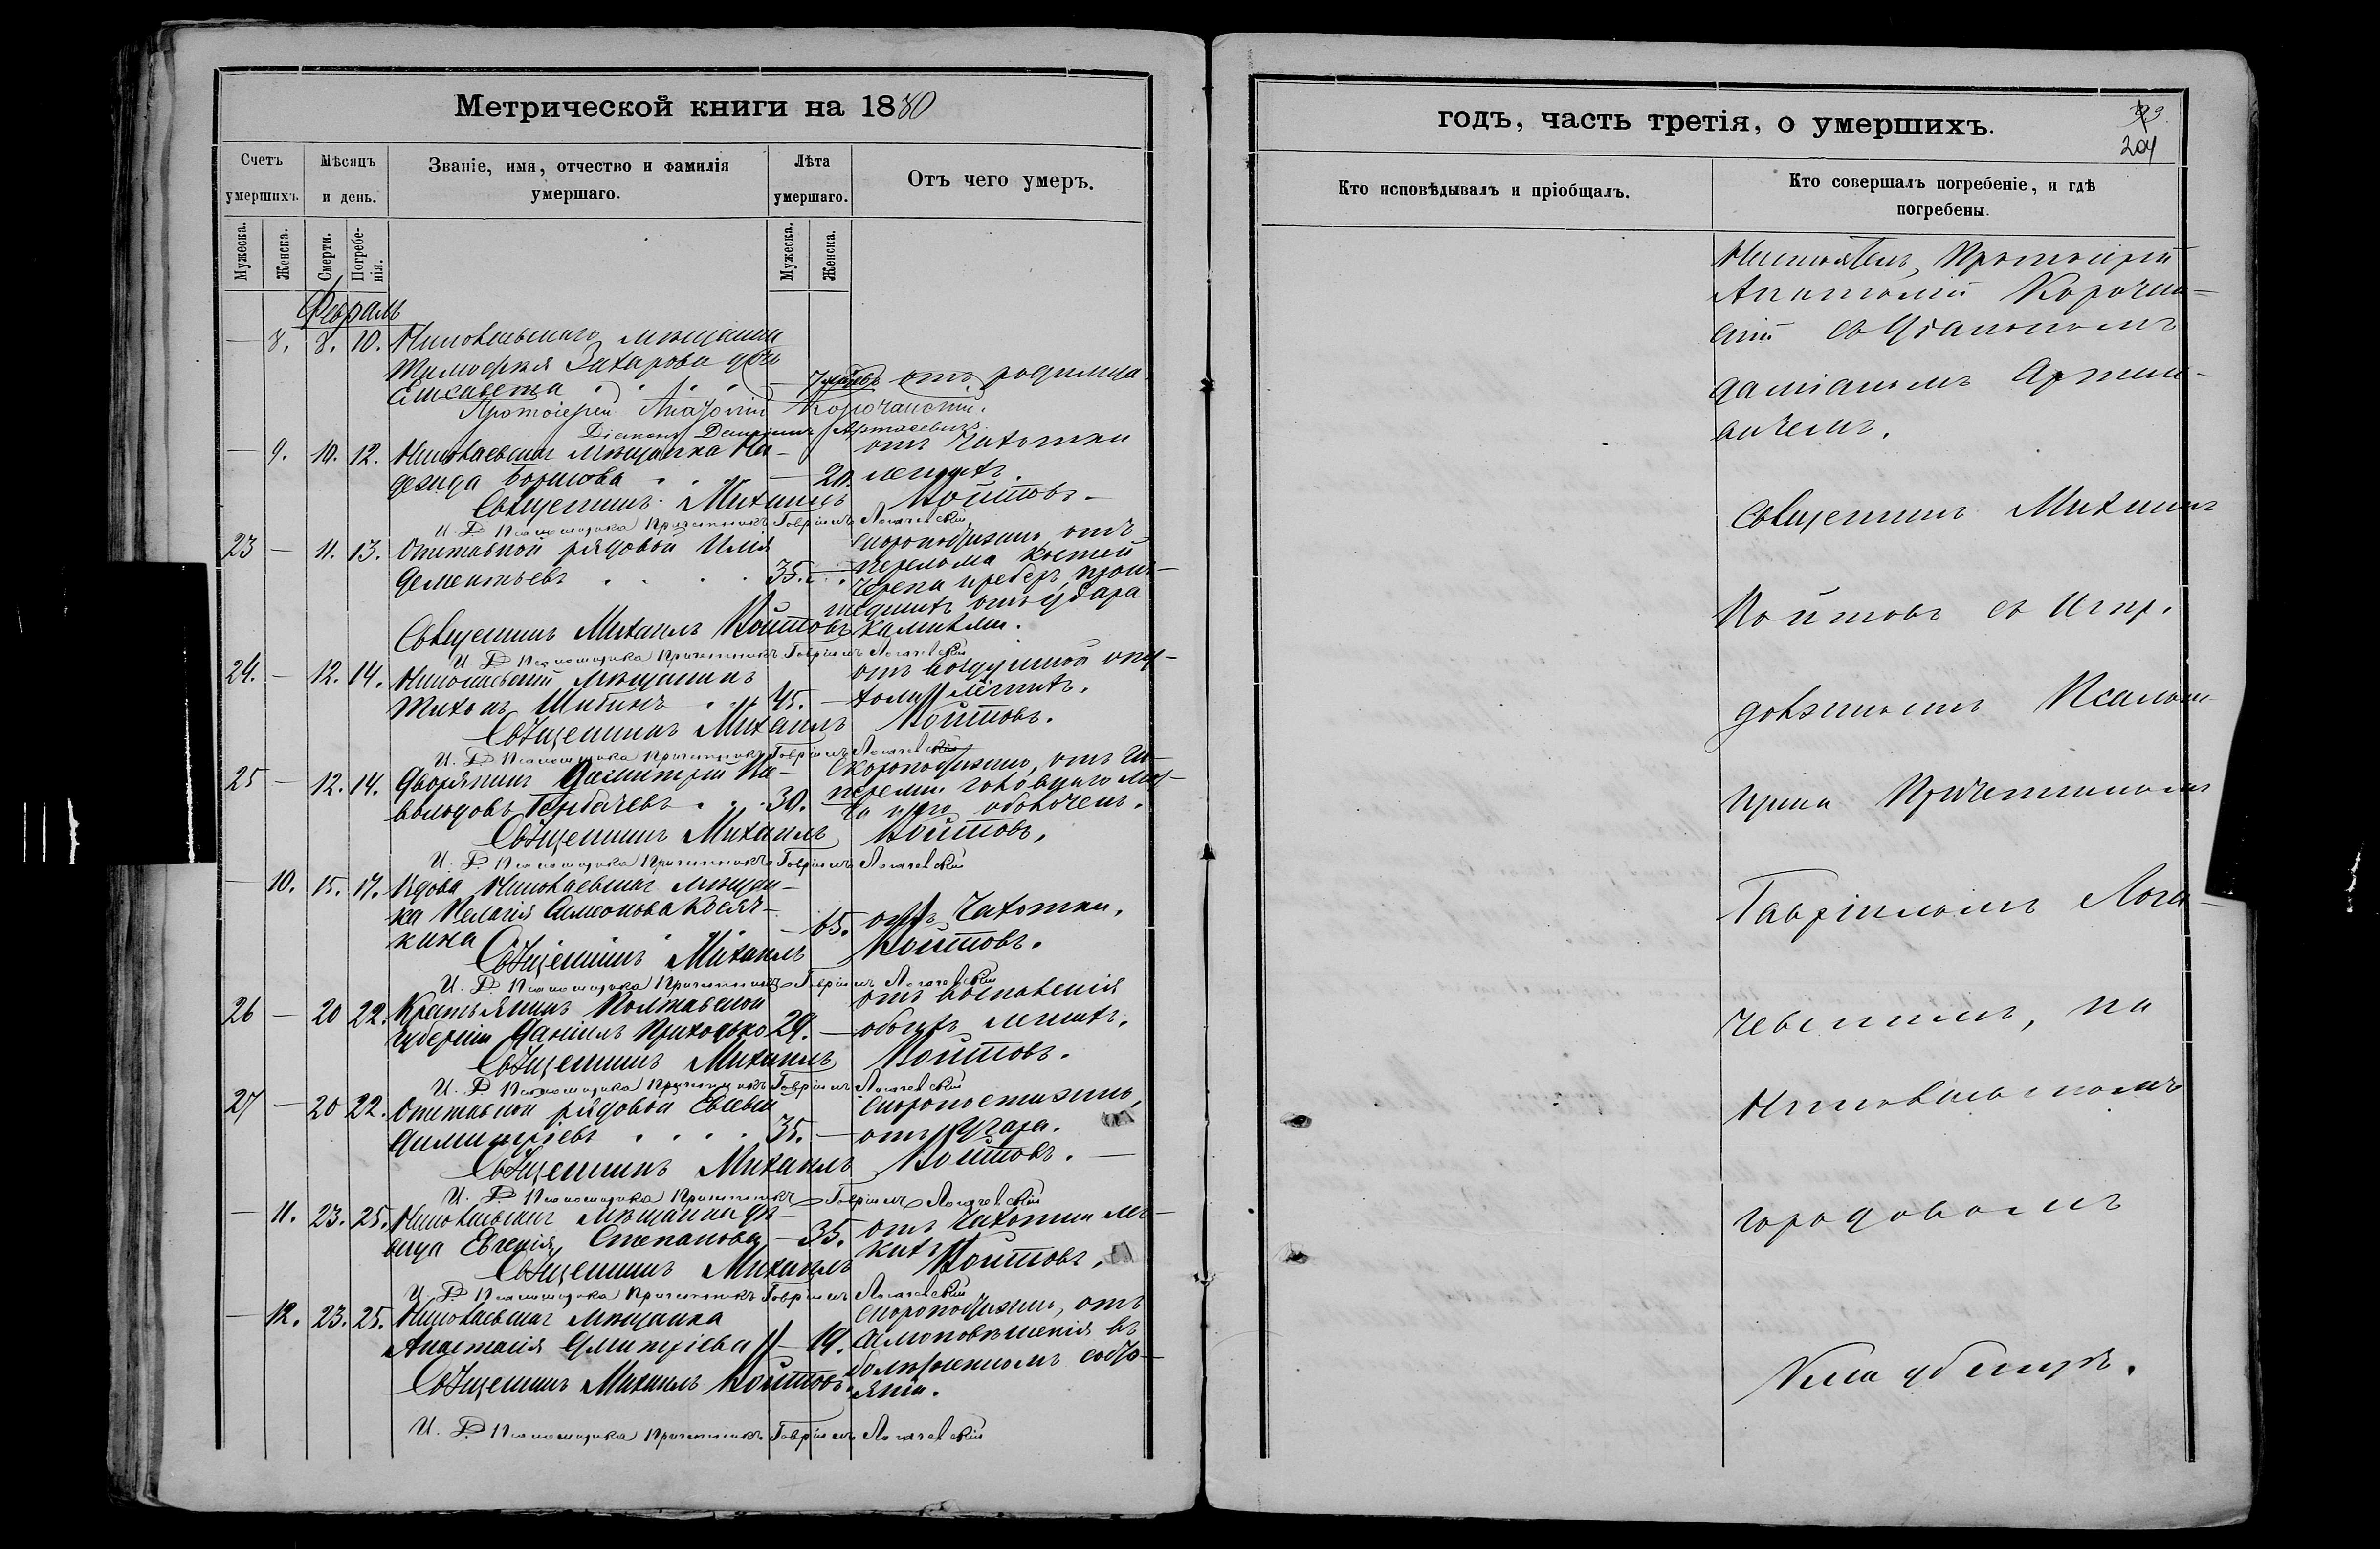 Метрической книги на 1880
Счетъ умершихъ.
Мѣсяцъ и день.
Званіе, имя, отчество и фамилія умершаго.
Лѣта умершаго.
Отъ чего умеръ.
Мужеска.
Женска.
Смерти.
Погребенія.
Мужеска.
Женска.
Февраль
— 8. 8. 10. Николаевскаго мѣщанина
Тимофея Захарова дочь
Елисавета — 7 отъ родимца.
Протоіерей Анатолій Корочанскій.
Діаконъ Даміанъ Артасевичъ
— 9. 10. 12. Николаевская мѣщанка На- отъ чахотки
дежда Борисова — 20. легкихъ.
Священникъ Михаилъ Войтовъ.
И. Д. Псаломщика Причетникъ Гавріилъ Логачевскій
23 — 11. 13. Отставной рядовой Илія скоропостижно, отъ
Дементьевъ 35. — перелома костей
черепа и реберъ, проис-
шедшихъ отъ удара
Священникъ Михаилъ Войтовъ камнями.
И. Д. Псаломщика Причетникъ Гавріилъ Логачевскій
24. — 12. 14. Николаевскій мѣщанинъ отъ воздушной опу-
Тихонъ Шибинъ 45. — холи легкихъ.
Священникъ Михаилъ Войтовъ.
И. Д. Псаломщика Причетникъ Гавріилъ Логачевскій
25 — 12. 14. Дворянинъ Димитрій Ва- Скоропостижно, отъ
володовъ Горбачевъ 30. — головнаго моз-
га и его оболочекъ.
Священникъ Михаилъ Войтовъ.
И. Д. Псаломщика Причетникъ Гавріилъ Логачевскій
— 10. 15. 17. Вдова Николаевская мѣщан-
ка Пелагія Симеонова Косяч-
кина — 65. отъ чахотки.
Священникъ Михаилъ Войтовъ.
И. Д. Псаломщика Причетникъ Гавріилъ Логачевскій
26 — 20 22. Крестьянинъ Полтавской отъ воспаленія
губерніи Даніилъ Приходько 29. — обоихъ легкихъ.
Священникъ Михаилъ Войтовъ.
И. Д. Псаломщика Причетникъ Гавріилъ Логачевскій
27 — 20 22. Отставной рядовой Евсевій Скоропостижно,
Димитріевъ 35. — отъ угара.
Священникъ Михаилъ Войтовъ.
И. Д. Псаломщика Причетникъ Гавріилъ Логачевскій
— 11. 23. 25. Николаевская мѣщанка дѣ-
вица Евгенія Степанова — 35. отъ чахотки лег-
кихъ.
Священникъ Михаилъ Войтовъ.
И. Д. Псаломщика Причетникъ Гавріилъ Логачевскій
— 12. 23. 25. Николаевская мѣщанка Скоропостижно, отъ
Анастасія Димитріева — 19. самоповѣшенія въ
болѣзненномъ состо-
Священникъ Михаилъ Войтовъ. яніи.
И. Д. Псаломщика Причетникъ Гавріилъ Логачевскій
годъ, часть третія, о умершихъ.
204
Кто исповѣдывалъ и пріобщалъ.
Кто совершалъ погребеніе, и гдѣ погребены.
Настоятель, Протоіерей
Анатолій Корочан-
скій съ Діакономъ
Даміаномъ Артасе-
вичемъ.
Священникъ Михаилъ
Войтовъ съ Испр.
должность Псалом-
щика Причетникомъ
Гавріиломъ Лога-
чевскимъ, на
Николаевскомъ
городовомъ
Кладбищѣ.